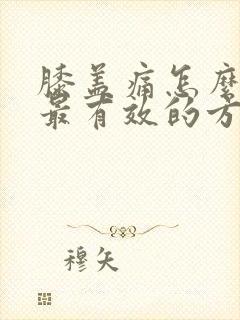 膝盖痛怎么
最有效的方
穆矢